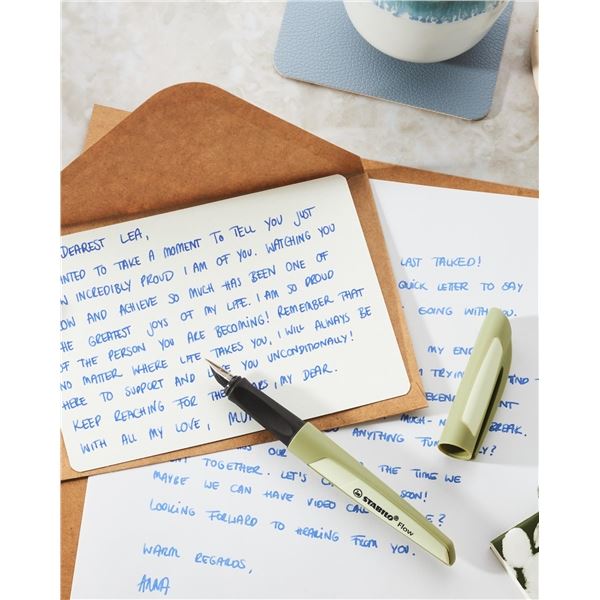 DEAREST LEA,
NTED TO TAKE A MOMENT TO TELL YOU JUST
W INCREDIBLY PROUD I AM OF YOU. WATCHING YOU
OW AND ACHIEVE SO MUCH HAS BEEN ONE OF
HE GREATEST JOYS OF MY LIFE. I AM SO PROUD
OF THE PERSON YOU ARE BECOMING! REMEMBER THAT
NO MATTER WHERE LIFE TAKES YOU, I WILL ALWAYS BE
HERE TO SUPPORT AND YOU UNCONDITIONALLY!
KEEP REACHING FOR THE ARS, MY DEAR.
WITH ALL MY LOVE, MUM
LAST TALKED!
QUICK LETTER TO SAY
GOING WITH YOU.
MY EN
TRYIN ND-
EKEN NT
MUCH- N BREAK.
ANYTHING FUN LY?
OUR THE TIME WE
NT TOGETHER. LET'S C SOON!
MAYBE WE CAN HAVE VIDEO CAL E?
LOOKING FORWARD TO HEARING FROM YOU.
WARM REGARDS,
ANNA
STABILO® Flow